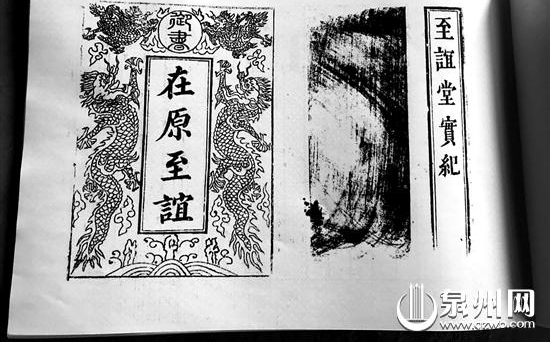 至誼堂實紀
御書
在原至誼
泉州网
www.qzwb.com